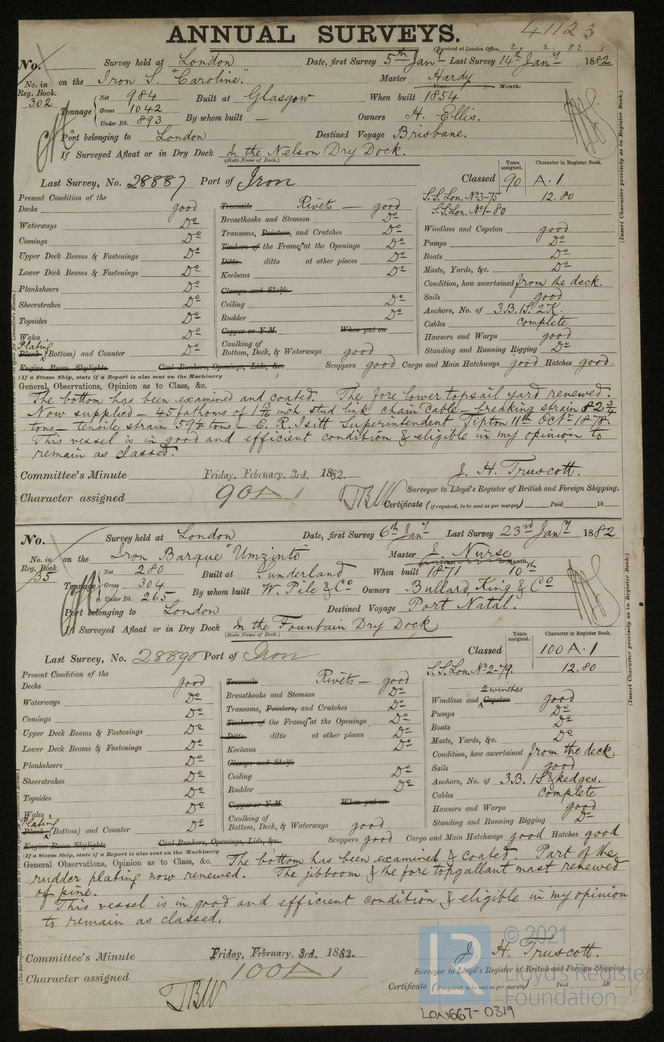 ANNUAL SURVEYS.
41123
(Received at London Office, 2. 2. 82 )
No. Survey held at London Date, first Survey 5th Jany Last Survey 14th Jany 1882
No. in Reg. Book. 302 on the Iron S. "Caroline." Master Hardy
Year. Month.
Tonnage Net 984 Gross 1042 Under Dk. 893 Built at Glasgow When built 1854
By whom built — Owners H. Ellis.
Port belonging to London Destined Voyage Brisbane.
If Surveyed Afloat or in Dry Dock In the Nelson Dry Dock.
(State Name of Dock.)
Years assigned. Character in Register Book.
Last Survey, No. 28887 Port of Iron Classed 90 A.1
S.S. Lon. No 3-75 12.80
S.S. Lon. No 1-80
Present Condition of the
Decks good Treenails Rivets — good
Waterways Do Breasthooks and Stemson Do Windlass and Capstan good
Comings Do Transoms, Pointers, and Crutches Do Pumps Do
Upper Deck Beams & Fastenings Do Timbers of the Frames at the Openings Do Boats Do
Lower Deck Beams & Fastenings Do Ditto ditto at other places Do Masts, Yards, &c. Do
Planksheers Do Keelsons Do Condition, how ascertained from the deck.
Sheerstrakes Do Clamps and Shelfs Sails good
Topsides Do Ceiling Do Anchors, No. of 3B. 1S. 2K.
Wales Do Rudder Do Cables complete
Plating Copper or Y.M. When put on Hawsers and Warps good
Plank (Bottom) and Counter Do Caulking of Bottom, Deck, & Waterways good Standing and Running Rigging Do
Engine Room Skylights Coal Bunkers, Openings, Lids, &c. Scuppers good Cargo and Main Hatchways good Hatches good.
(If a Steam Ship, state if a Report is also sent on the Machinery )
General, Observations, Opinion as to Class, &c.
The bottom has been examined and coated. The fore lower topsail yard renewed.
Now supplied — 45 fathoms of inch stud link chain cable — breaking strain 82 3/4
tons — tensile strain tons — E. R. Isitt Superintendent Tipton 11th Octr 1878.
This vessel is in good and efficient condition & eligible in my opinion to
remain as classed.
Committee's Minute Friday, February 3rd, 1882. J. H. Truscott.
Surveyor to Lloyd's Register of British and Foreign Shipping.
Character assigned 90 A 1 TBW Certificate (if required, to be sent as per margin) Paid 18
No. Survey held at London Date, first Survey 6th Jany Last Survey 23rd Jany 1882
No. in Reg. Book. 35 on the Iron Barque "Umzinto" Master J. Nurse
Tonnage Net 280 Gross 304 Under Dk. 265 Built at Sunderland When built 1871 10th
By whom built W. Pile & Co Owners Bullard, King & Co
Port belonging to London Destined Voyage Port Natal.
If Surveyed Afloat or in Dry Dock In the Fountain Dry Dock
(State Name of Dock.)
Years assigned. Character in Register Book.
Last Survey, No. 28890 Port of Iron Classed 100 A.1
S.S. Lon. No 2-79. 12.80
Present Condition of the
Decks good Treenails Rivets — good 2 winches
Waterways Do Breasthooks and Stemson Do Windlass and Capstan good
Comings Do Transoms, Pointers, and Crutches Do Pumps Do
Upper Deck Beams & Fastenings Do Timbers of the Frames at the Openings Do Boats Do
Lower Deck Beams & Fastenings Do Ditto ditto at other places Do Masts, Yards, &c. Do
Planksheers Do Keelsons Do Condition, how ascertained from the deck
Sheerstrakes Do Clamps and Shelfs Sails good
Topsides Do Ceiling Do Anchors, No. of 3B. 1S. & kedges.
Wales Do Rudder Do Cables complete
Plating Copper or Y.M. When put on Hawsers and Warps good
Plank (Bottom) and Counter Do Caulking of Bottom, Deck, & Waterways good Standing and Running Rigging Do
Engine Room Skylights Coal Bunkers, Openings, Lids, &c. Scuppers good Cargo and Main Hatchways good Hatches good
(If a Steam Ship, state if a Report is also sent on the Machinery )
General Observations, Opinion as to Class, &c. The bottom has been examined & coated. Part of the
rudder plating now renewed. The jibboom & the fore topgallant mast renewed
of pine.
This vessel is in good and efficient condition & eligible in my opinion
to remain as classed.
Committee's Minute Friday, February 3rd, 1882. J. H. Truscott.
Surveyor to Lloyd's Register of British and Foreign Shipping.
Character assigned 100 A 1 TBW Certificate (if required, to be sent as per margin) Paid 18
(Insert Character precisely as in Register Book.)
(Insert Character precisely as in Register Book.)
© 2021
Lloyd's Register
Foundation
LR
LON667-0319